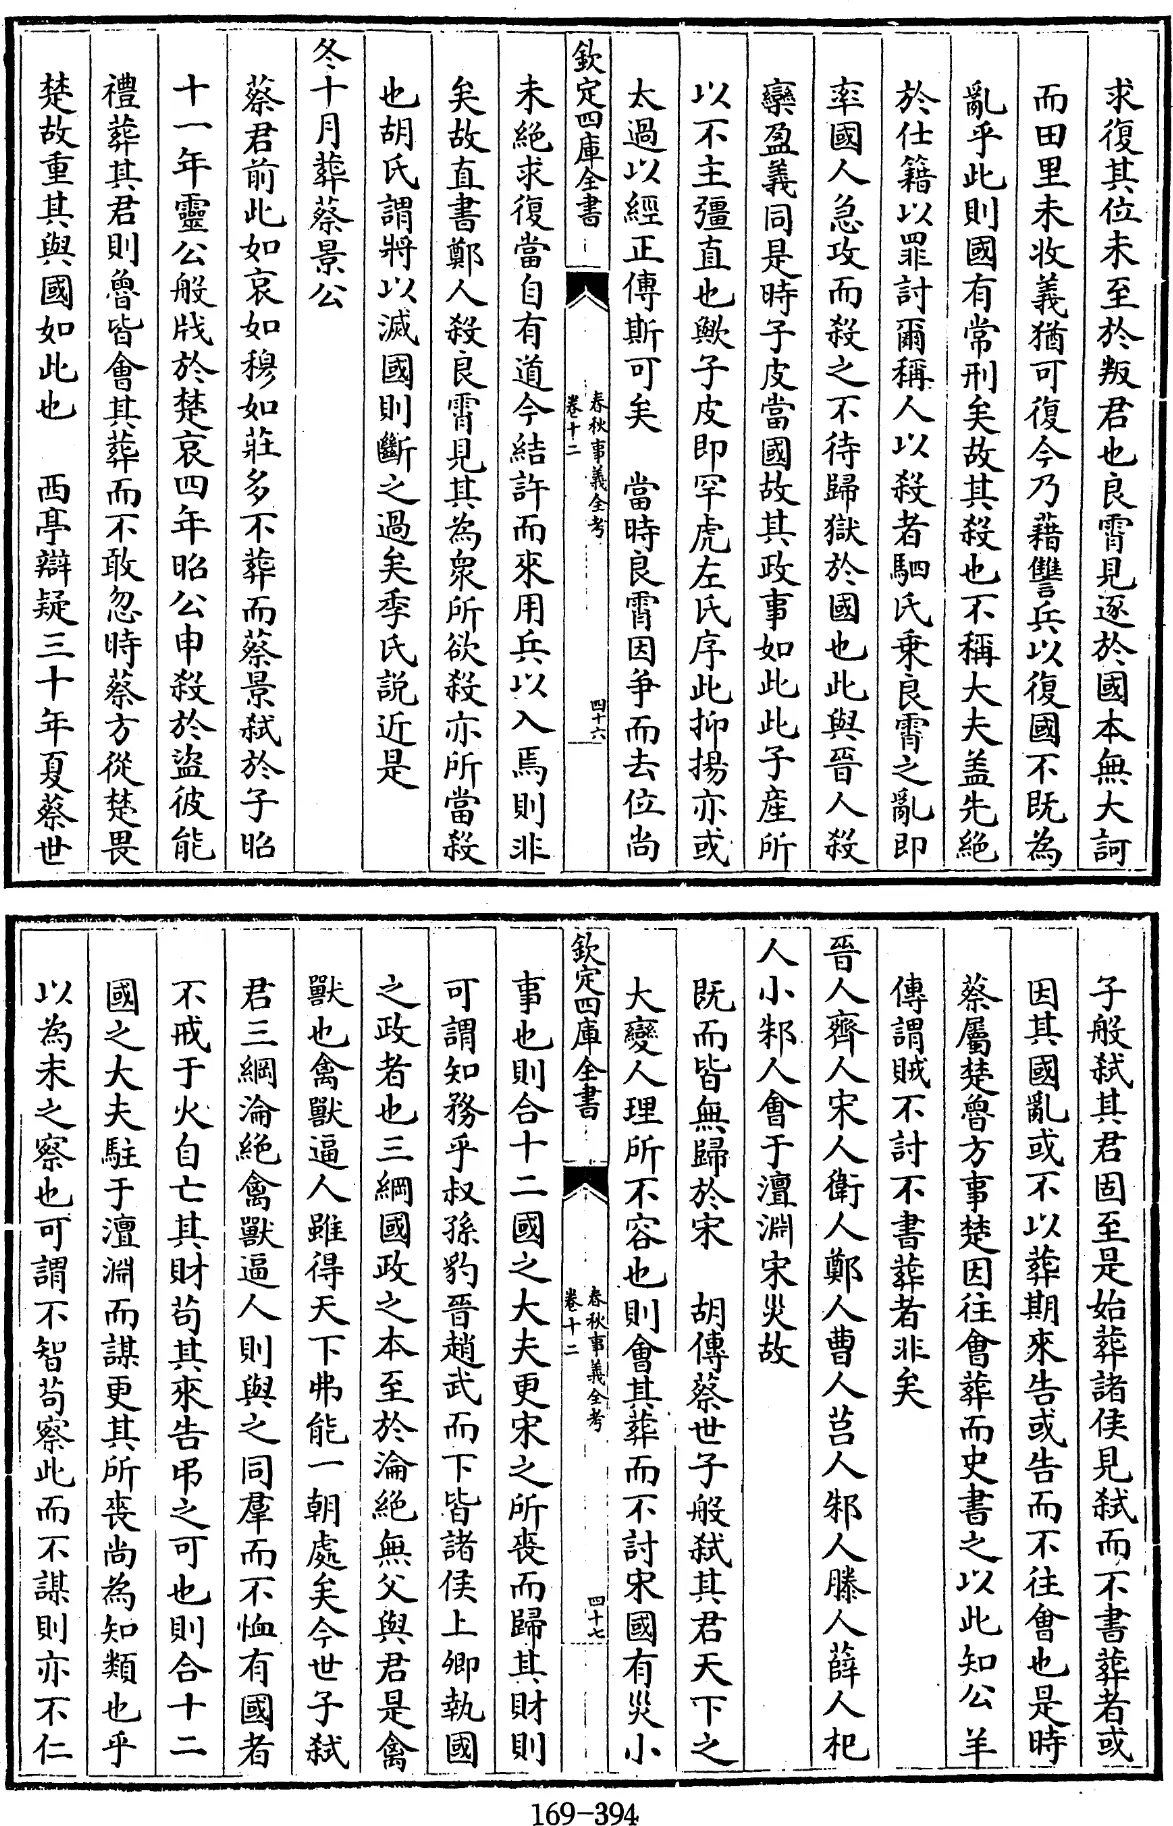 求復其位未至於叛君也良霄見逐於國本無大訶
而田里未收義猶可復今乃藉讐兵以復國不既為
亂乎此則國有常刑矣故其殺也不稱大夫盖先絶
於仕籍以罪討爾稱人以殺者駟氏乗良霄之亂即
率國人急攻而殺之不待歸獄於國也此與晉人殺
欒盈義同是時子皮當國故其政事如此此子産所
以不主彊直也歟子皮即罕虎左氏序此抑揚亦或
太過以經正傳斯可矣　當時良霄因争而去位尚
欽定四庫全書
春秋事義全考
卷十二
四十六
未絶求復當自有道今結許而來用兵以入焉則非
矣故直書鄭人殺良霄見其為衆所欲殺亦所當殺
也胡氏謂將以滅國則斷之過矣季氏説近是
冬十月葬蔡景公
蔡君前此如哀如穆如莊多不葬而蔡景弑於子昭
十一年靈公般戕於楚哀四年昭公申殺於盜彼能
禮葬其君則魯皆會其葬而不敢忽時蔡方從楚畏
楚故重其與國如此也　西亭辯疑三十年夏蔡世
子般弑其君固至是始葬諸侯見弑而不書葬者或
因其國亂或不以葬期來告或告而不往會也是時
蔡屬楚魯方事楚因往會葬而史書之以此知公羊
傳謂賊不討不書葬者非矣
晉人齊人宋人衛人鄭人曹人莒人邾人滕人薛人杞
人小邾人會于澶淵宋災故
既而皆無歸於宋　胡傳蔡世子般弑其君天下之
大變人理所不容也則會其葬而不討宋國有災小
欽定四庫全書
春秋事義全考
卷十二
四十七
事也則合十二國之大夫更宋之所喪而歸其財則
可謂知務乎叔孫豹晉趙武而下皆諸侯上卿執國
之政者也三綱國政之本至於淪絶無父與君是禽
獸也禽獸逼人雖得天下弗能一朝處矣今世子弑
君三綱淪絶禽獸逼人則與之同羣而不恤有國者
不戒于火自亡其財苟其來告弔之可也則合十二
國之大夫駐于澶淵而謀更其所喪尚為知類也乎
以為未之察也可謂不智苟察此而不謀則亦不仁
169-394